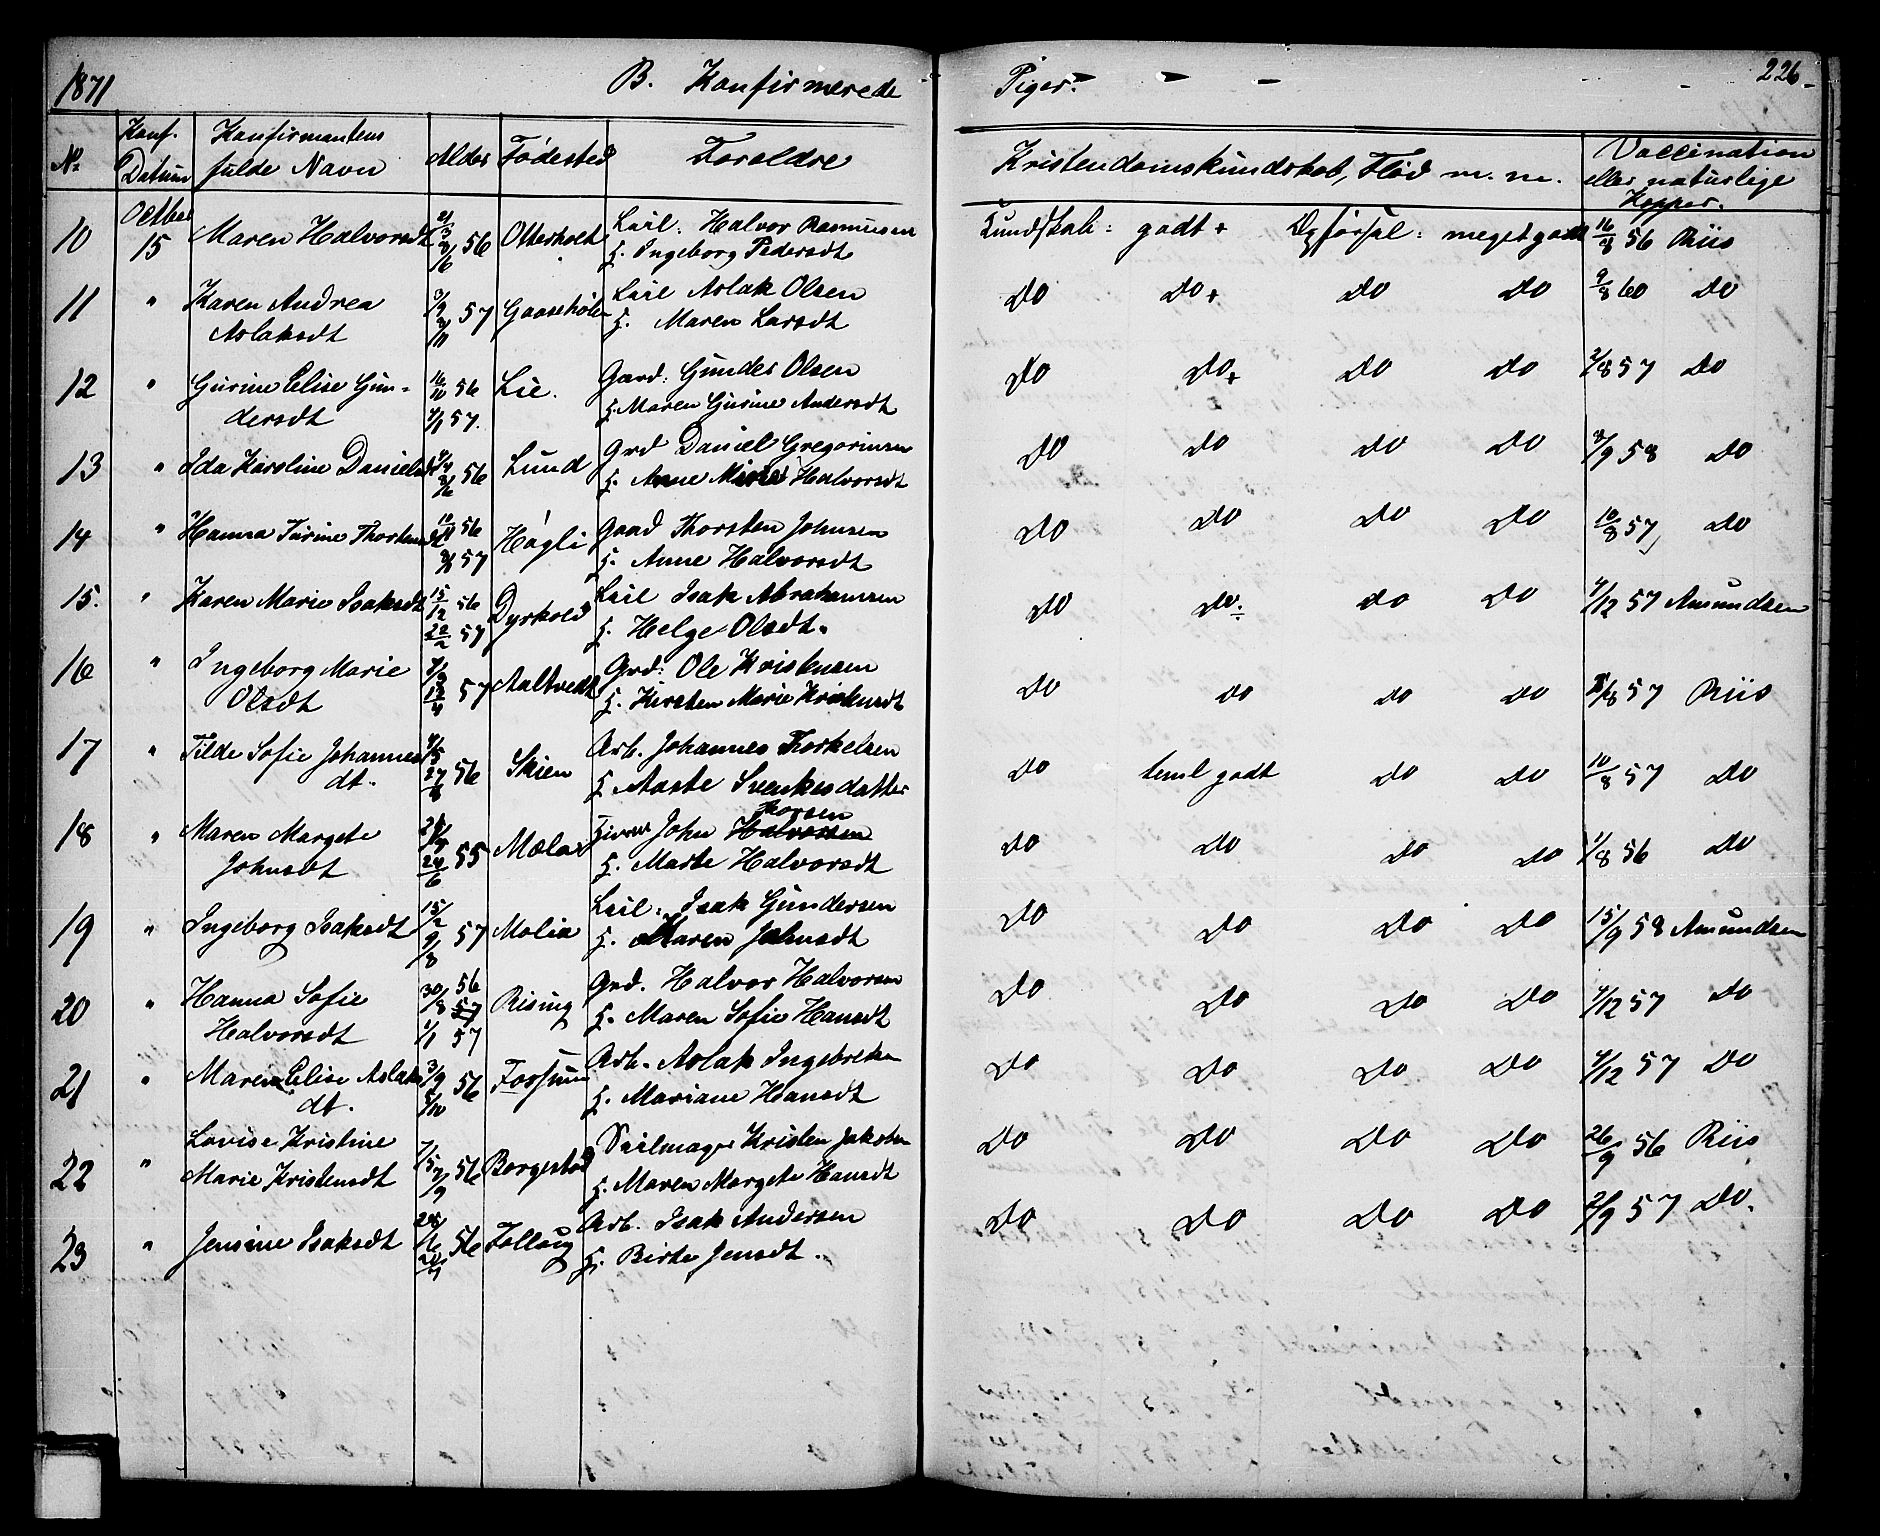 1871 B. Konfirmerede Piger. 226
No Konf. Datum Konfirmantens fulde Navn Alder Fødested Foreldre Kristendomskundskab, Flid m. m. Vaccination eller naturlige Kopper.
10 Octber 15 Maren Halvorsdt 56 Otterholt Leil. Halvor Rasmussen Kundskab: godt + Opførsel: meget godt 16/8 56 Riis
H. Ingeborg Pedersdt
11 " Karen Andrea 3/9 57 Gaaseholm Leil Aslak Olsen do do + do do 9/8 60 do
Aslaksdt H. Maren Larsdt
12 " Gurine Elise Gun- 16/10 56 Lie. Gaard: Gunder Olsen do do + do do 2/8 57 do
dersdt 57. H. Maren Gurine Andersdt
13 " Ida Karoline Daniels 56 Lund Grd Daniel Gregoriusen do do do do 3/9 58 do
H. Anne Marie Halvorsdt
14 " Hanna Turine Thorstens 56 Høgli Gaad Thorsten Johnsen do do do do 10/8 57 do
57 H. Anne Halvorsdt
15. " Karen Marie Isaksdt 15/12 56 Dyrkold Leil Isak Abrahamsen do do ÷ do do 4/12 57 Amundsen
20/2 57 H. Helge Olsdt.
16 " Ingeborg Marie 57 Aaltvedt Grd: Ole Kristensen do do do do 57 Riis
Olsdt 12/4 H. Kirsten Marie
17 " Tilde Sofie Johannes 56 Skien Arb. Johannes Thorkelsen do teml godt do do 10/8 57 do
dt. H. Aaste Svenkesdatter
Thorsen
18 " Maren Margete 55 Mælar John Halvorsen do do do do 1/8 56 do
Johnsdt 24/6 H. Marte Halvorsdt
19 " Ingeborg Isaksdt 15/2 57 Molia Leil. Isak Gundersen do do do do 15/9 58 Amundsen
9/8 H. Maren Johnsdt
20 " Hanna Sofie 30/8 56 57 Rising Grd. Halvor Halvorsen do do do do 4/12 57 do
Halvorsdt 1/1 57 H. Maren Sofie Hansdt
21 " Maren Elise Aslaks 3/9 56 Fossum Arb. Aslak Ingebretsen do do do do 4/12 57 do
dt. H. Mariane Hansdt
22 " Lovise Kristine 7/5 56 Borgestad Seilmager Kristen Jakobsen do do do do 26/9 56 Riis
Marie Kristensdt H. Maren Margete Hansdt
23 " Jensine Isaksdt 56 Follaug Arb. Isak Andersen do do do do 2/9 57 do.
H. Birte Jensdt.